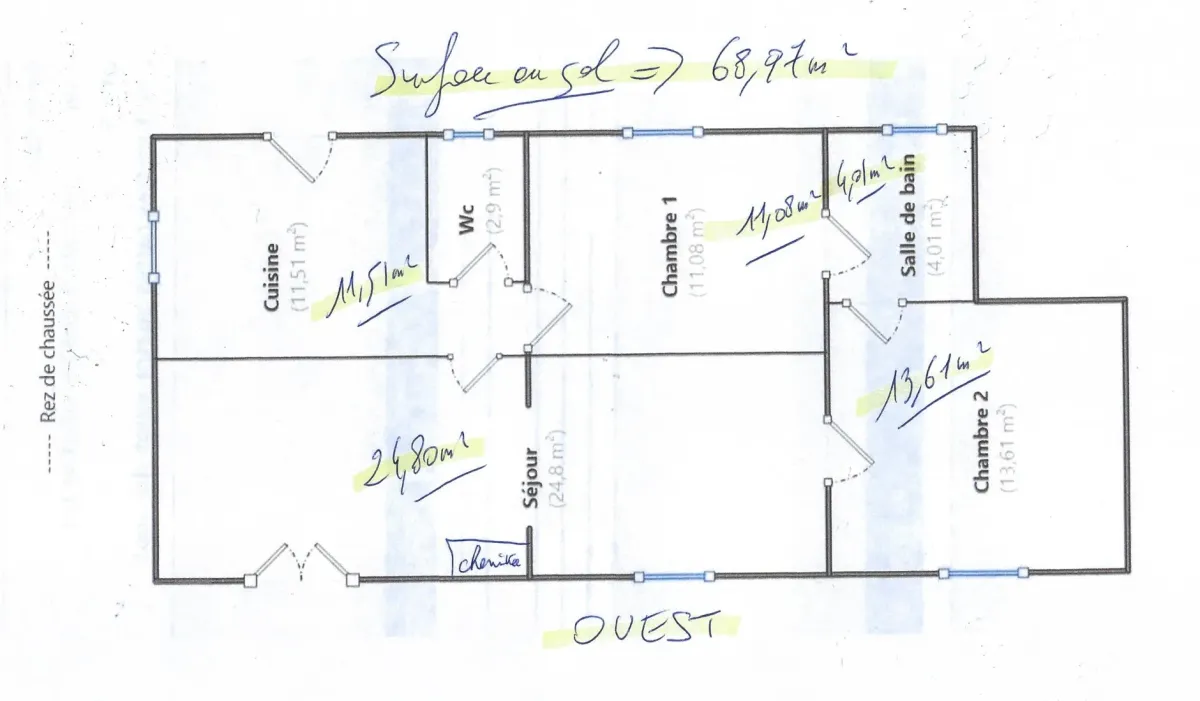 Surface au sol => 68,97m²
----- Rez de chaussée -----
Cuisine
(11,51 m²)
11,51m²
Wc
(2,9 m²)
Chambre 1
(11,08 m²)
11,08m²
4,01m²
Salle de bain
(4,01 m²)
24,80m²
Séjour
(24,8 m²)
13,61m²
Chambre 2
(13,61 m²)
OUEST